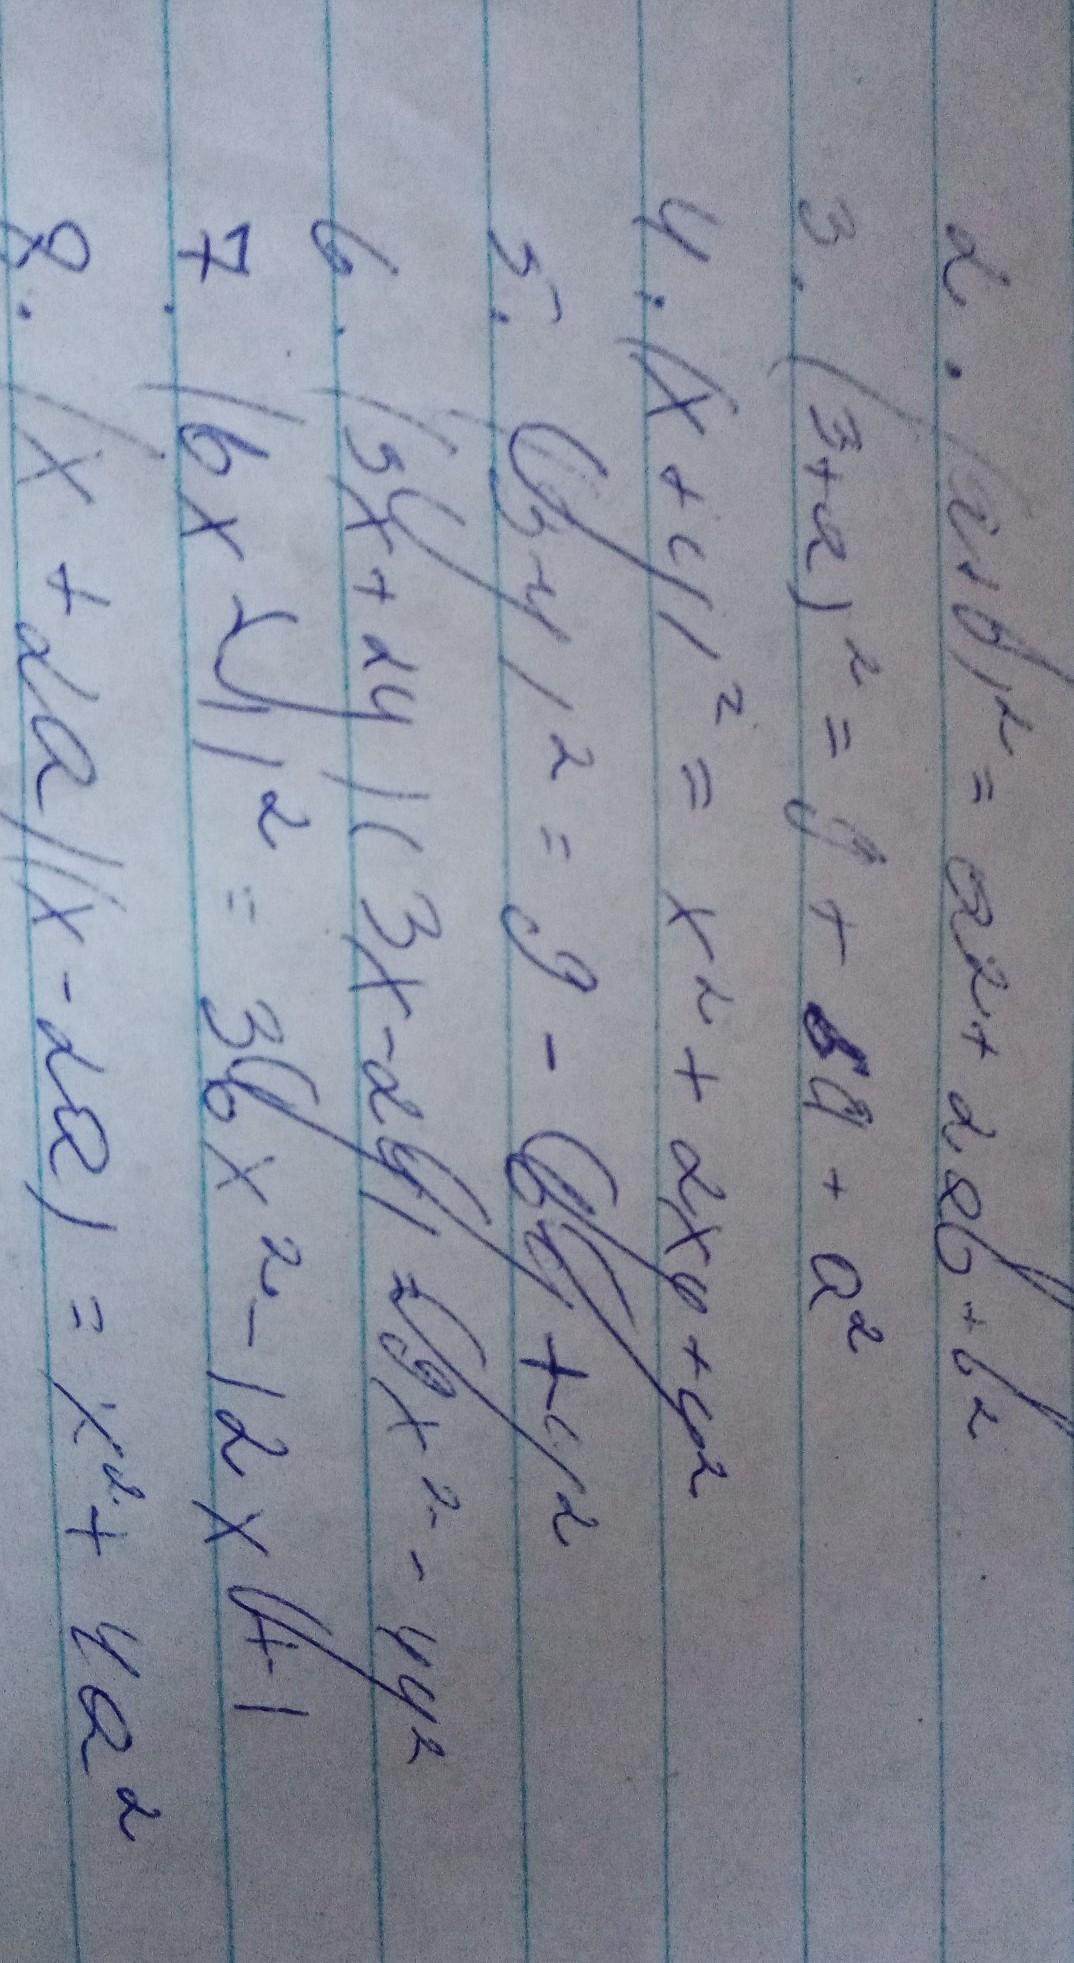 2. (a+b)² = a² + 2ab + b²
3. (3+a)² = 9 + 6a + a²
4. (x+y)² = x² + 2xy + y²
5. (3-y)² = 9 - 6y + y²
6. (3x+2y)(3x-2y) = 9x² - 4y²
7. (6x-1)² = 36x² - 12x + 1
8. (x+2a)(x-2a) = x² + 4a²